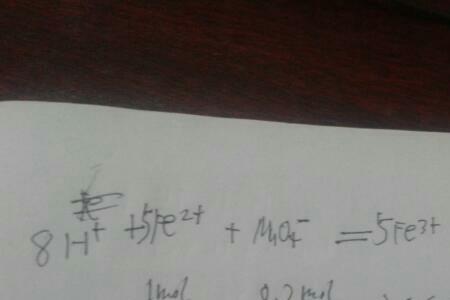 8H⁺ + 5Fe²⁺ + MnO₄⁻ = 5Fe³⁺
1mol 0.2mol